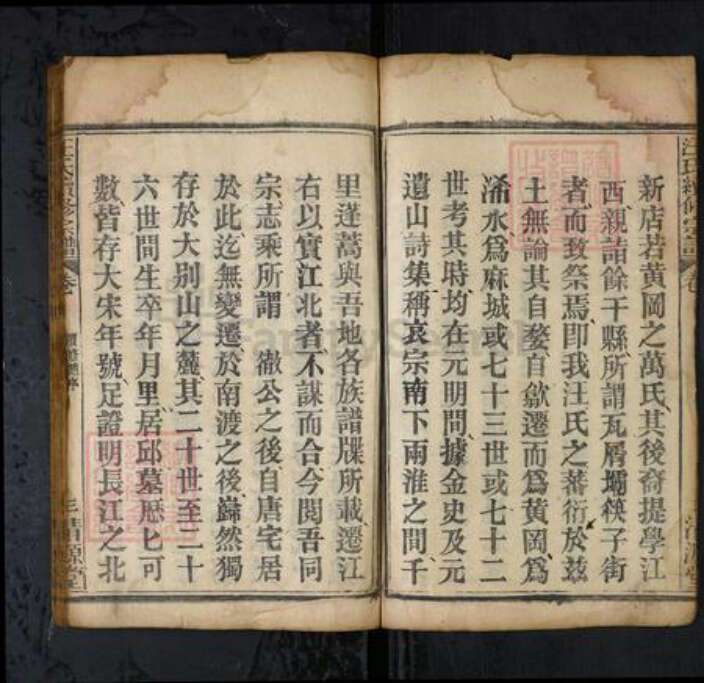 新店若黄岡之萬氏其後裔提學江
西親詣餘干縣所謂瓦屑壩筷子街
者而致祭焉即我汪氏之蕃衍於兹
土無論其自婺自歙遷而爲黄岡爲
浠水爲麻城或七十三世或七十二
世考其時均在元明間據金史及元
遺山詩集稱哀宗南下兩淮之間千
里蓬蒿與吾地各族譜牒所載遷江
右以實江北者不謀而合今閱吾同
宗志乘所謂 徽公之後自唐宅居
於此迄無變遷於南渡之後巋然獨
存於大别山之麓其二十世至二十
六世間生卒年月里居邱墓厯匕可
數皆存大宋年號足證明長江之北
汪氏續修宗譜
三 清源堂